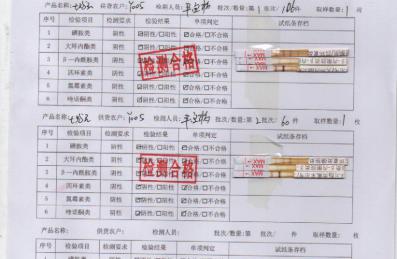 产品名称: 供货农户: Y005 检测人员: 批次/数量:第1批次/106件 取样数量:1 枚
序号 检验项目 检测要求 检验结果 单项判定 试纸条存档
1 磺胺类 阴性 ☑阴性/□阳性 ☑合格/□不合格
2 大环内酯类 阴性 ☑阴性/□阳性 ☑合格/□不合格
3 β-内酰胺类 阴性 ☑合格/□不合格
4 四环素类 阴性 ☑合格/□不合格
5 氟霉素类 阴性 ☑合格/□不合格
6 喹诺酮类 阴性 ☑阴性/□阳性 ☑合格/□不合格
检测合格
产品名称: 供货农户: Y005 检测人员: 批次/数量:第2批次/60件 取样数量:1 枚
序号 检验项目 检测要求 检验结果 单项判定 试纸条存档
1 磺胺类 阴性 ☑阴性/□阳性 ☑合格/□不合格
2 大环内酯类 阴性 ☑合格/□不合格
3 β-内酰胺类 阴性 ☑合格/□不合格
4 四环素类 阴性 ☑阴性/□阳性 ☑合格/□不合格
5 氟霉素类 阴性 ☑阴性/□阳性 ☑合格/□不合格
6 喹诺酮类 阴性 ☑阴性/□阳性 ☑合格/□不合格
检测合格
产品名称: 供货农户: 检测人员: 批次/数量:第 批次/ 件 取样数量: 枚
序号 检验项目 检测要求 检验结果 单项判定 试纸条存档